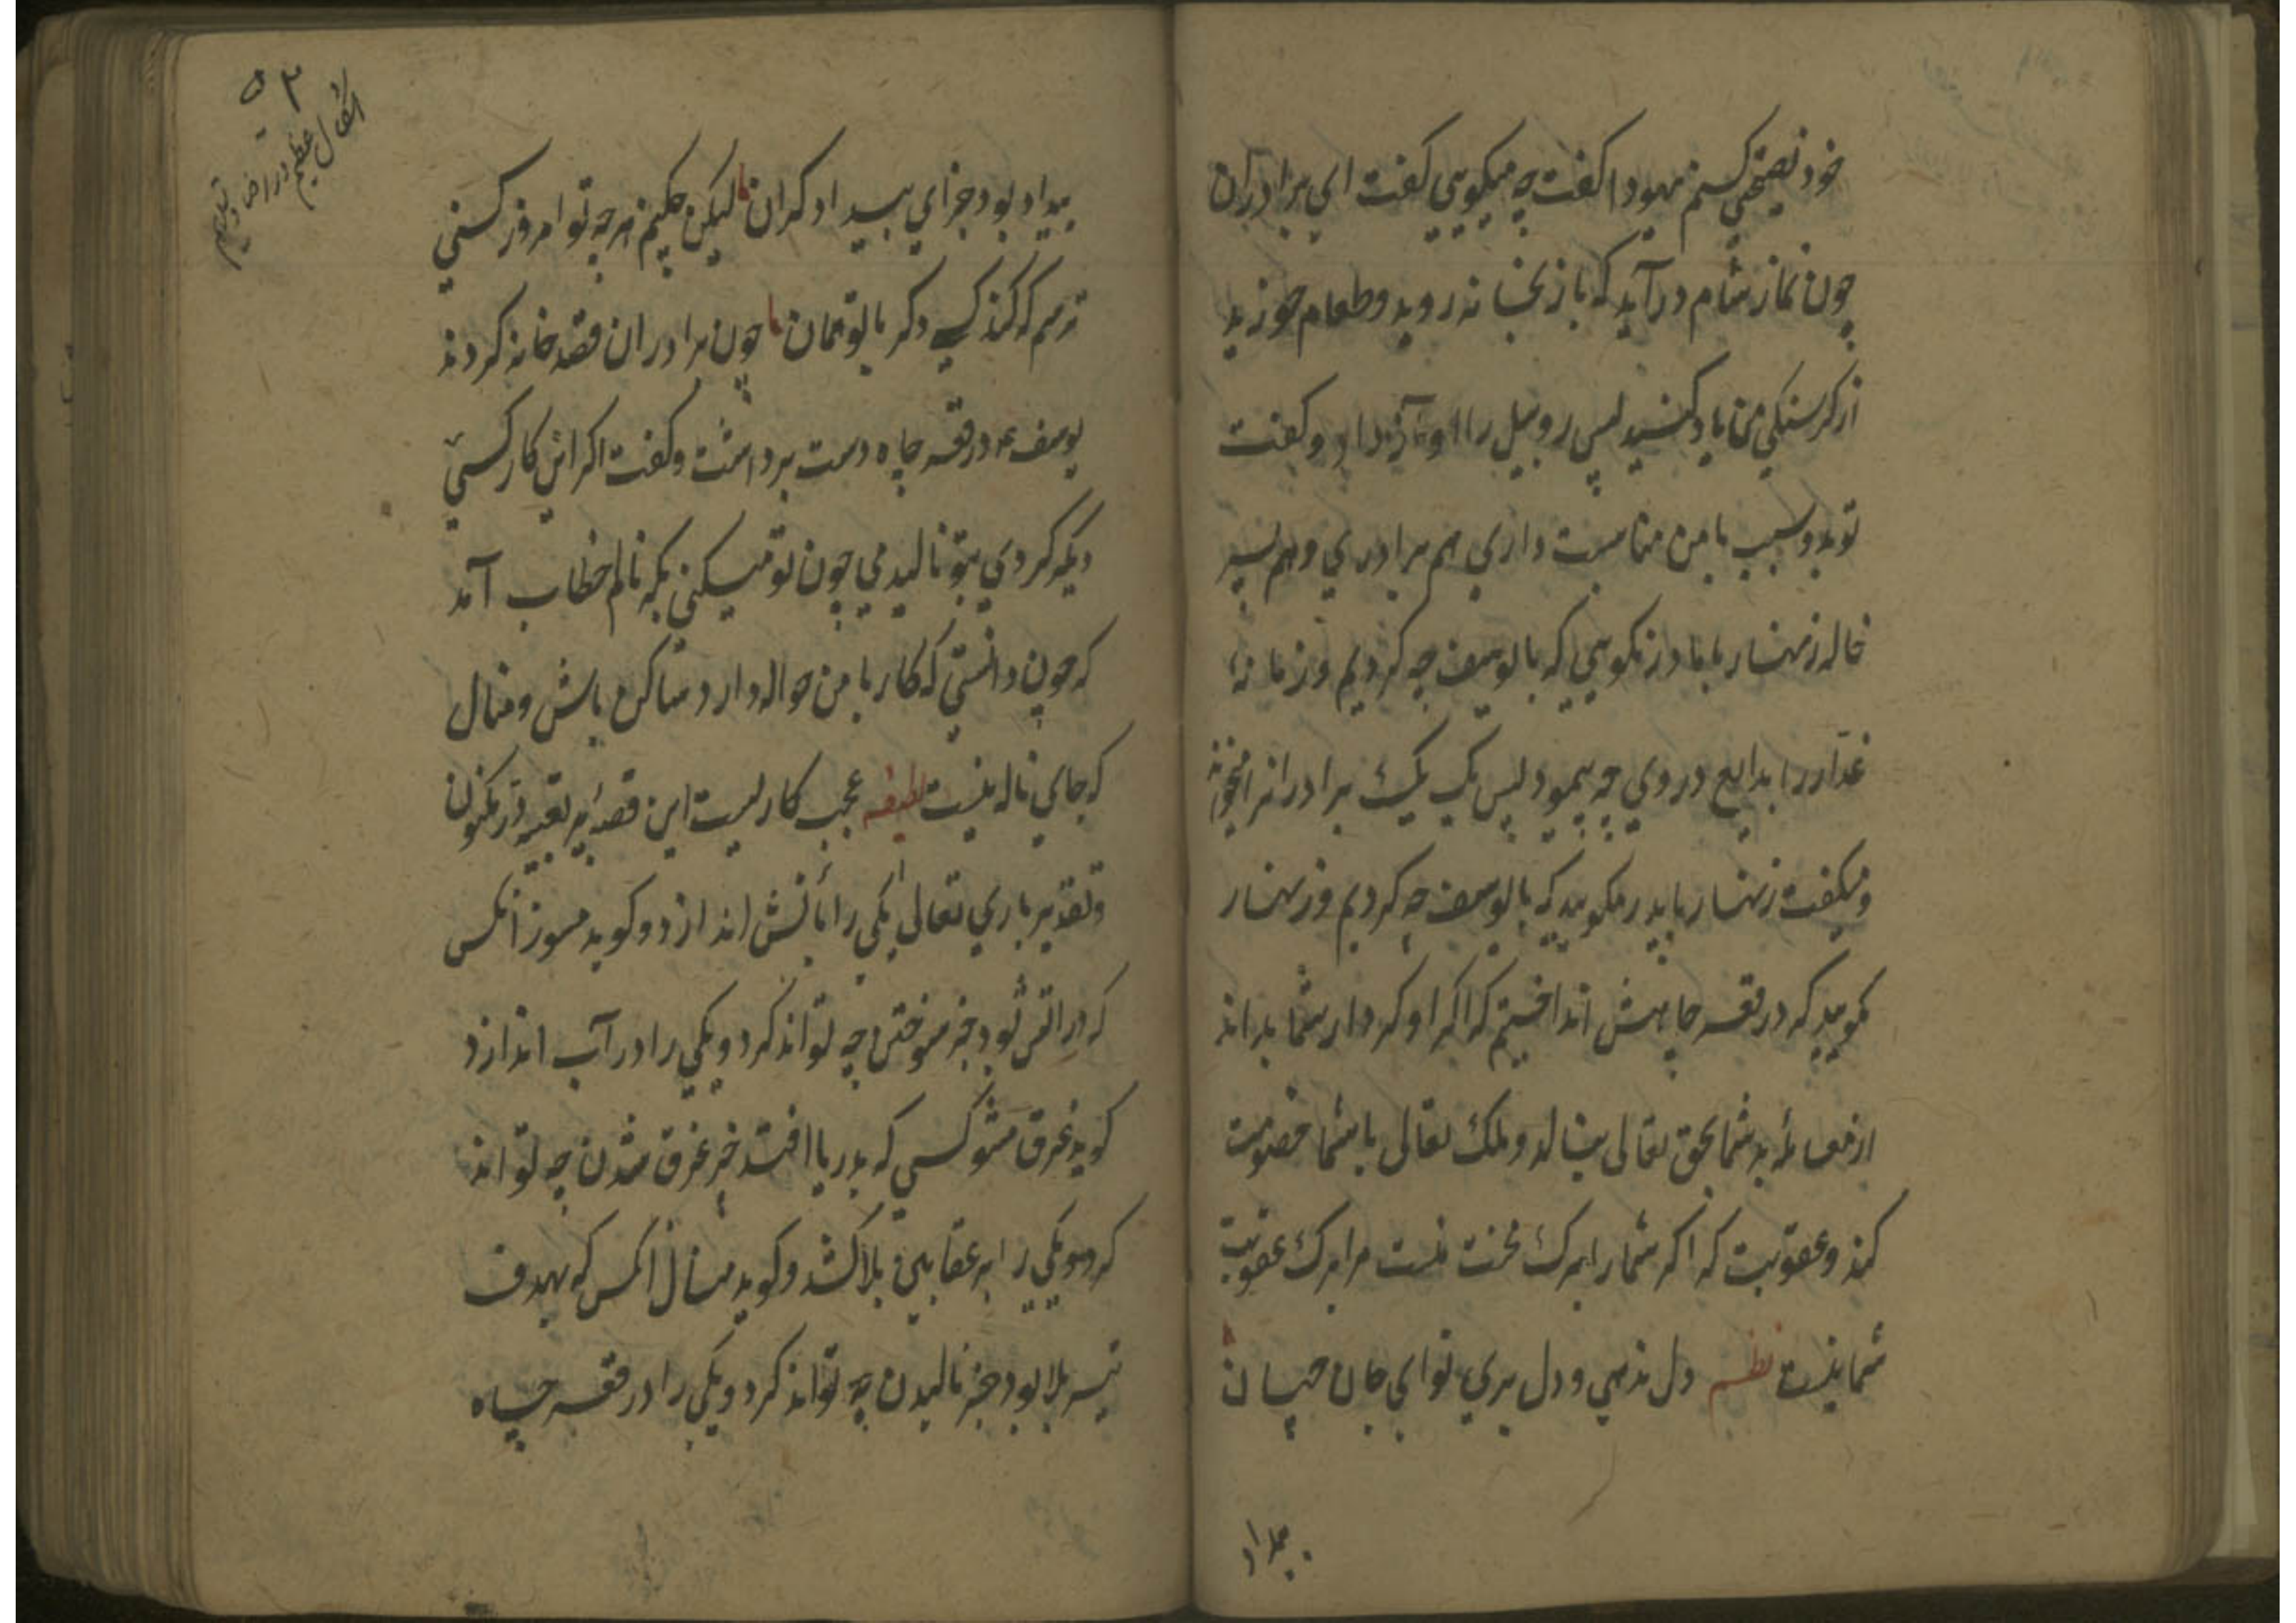 خود نصیحتی کنم یهودا گفت چه میکویی گفت ای برادران
چون نماز شام درآید که باز بخانه روید و طعام خورید
از کرسنکی من یاد کنید پس روبیل را آواز داد و گفت
تو بدو سبب با من مناسبت داری هم برادری و هم پسر
خاله زنهار با مادر نکویی که با یوسف چه کردیم و زمانهٔ
غدار را بدایع در وی چه پیمود پس یک یک برادرانرا میخواند
و میکفت زنهار با پدر مکویید که با یوسف چه کردیم و زنهار
مکویید که در قعر چاهش انداختیم که اگر او کردار شما بداند
از معامله بد شما بحق تعالی بنالد و ملک تعالی با شما خصومت
کند و عقوبت که اگر شما را برک محنت نیست مرا برک عقوبت
شما نیست نظم دل ندهی و دل بری تو ای جان جهان
بیداد
بیداد بود جزای بیدادکران لیکن چکنم هرچه تو امروز کنی
ترسم که کند کسی دکر با تو همان چون برادران قصد خانه کردند
یوسف ع در قعر چاه دست برداشت و گفت اگر این کار کسی
دیگر کردی بتو نالیدمی چون تو میکنی بکه نالم خطاب آمد
که چون دانستی که کار با من حواله دارد ساکن باش و منال
که جای ناله نیست لطیفه عجب کاریست این قصه پر تعبیه در مکنون
و تقدیر باری تعالی یکی را بآتش اندازد و کوید مسوز آنکس
که در آتش بود جز سوختن چه تواند کرد و یکی را در آب اندازد
کوید غرق مشو کسی که بدریا افتد جز غرق شدن چه تواند
کرد و یکی را بر عقابین بلا کشد و کوید منال آنکس که هدف
تیر بلا بود جز نالیدن چه تواند کرد و یکی را در قعر چاه